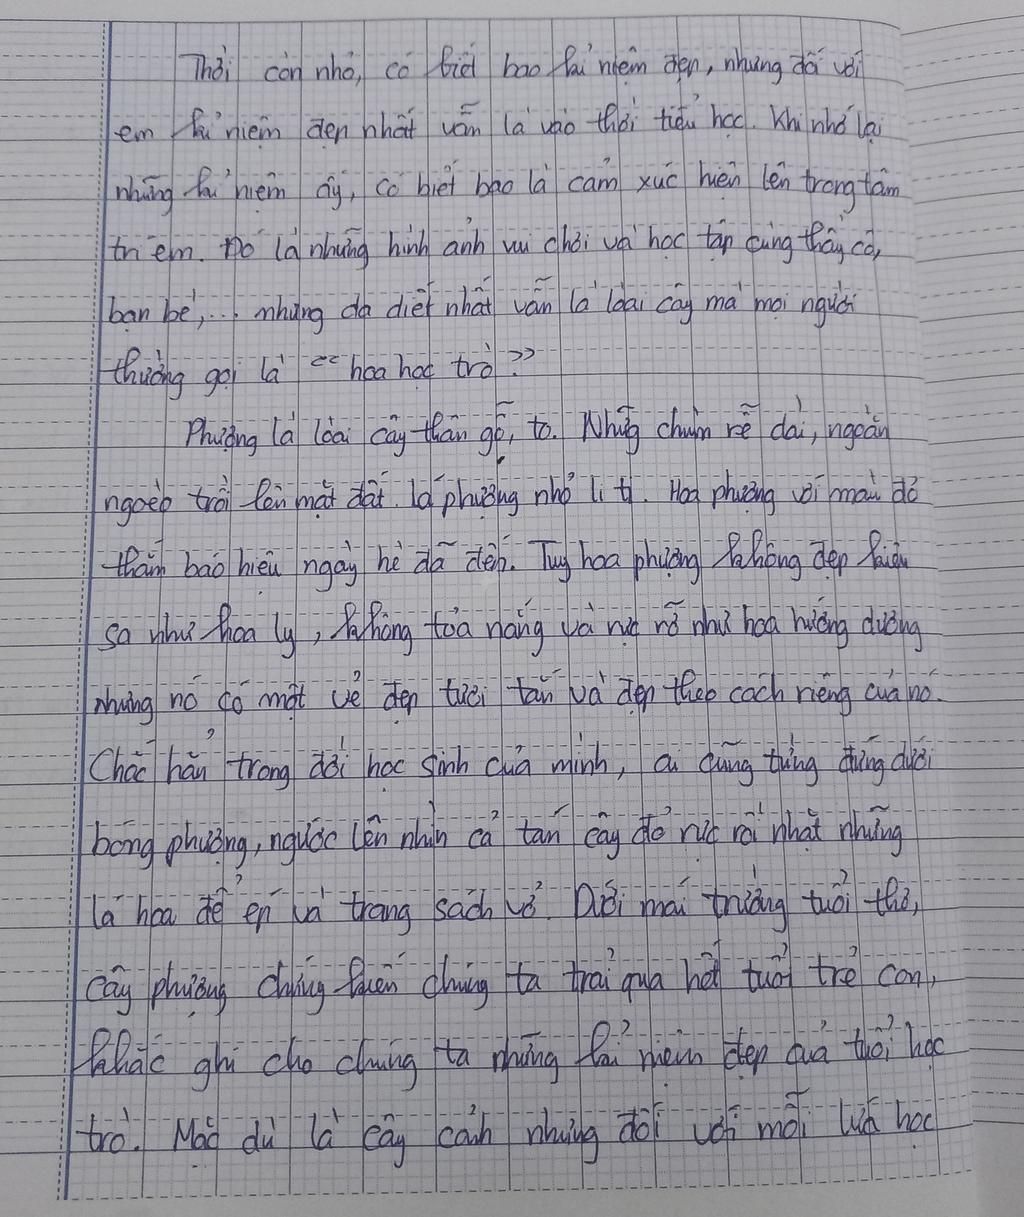 Thời còn nhỏ, có biết bao kỉ niệm đẹp, nhưng đối với
em kỉ niệm đẹp nhất vẫn là vào thời tiểu học. Khi nhớ lại
những kỉ niệm ấy, có biết bao là cảm xúc hiện lên trong tâm
trí em. Đó là những hình ảnh vui chơi và học tập cùng thầy cô,
bạn bè,... nhưng da diết nhất vẫn là loài cây mà mọi người
thường gọi là "hoa học trò"
Phượng là loài cây thân gỗ, to. Những chùm rễ dài, ngoằn
ngoèo trồi lên mặt đất. Lá phượng nhỏ li ti. Hoa phượng với màu đỏ
thắm báo hiệu ngày hè đã đến. Tuy hoa phượng không đẹp kiêu
sa như hoa ly, không tỏa nắng và rực rỡ như hoa hướng dương
nhưng nó có một vẻ đẹp tươi tắn và đẹp theo cách riêng của nó.
Chắc hẳn trong đời học sinh của mình, ai cũng từng đứng dưới
bóng phượng, ngước lên nhìn cả tán cây đỏ rực rồi nhặt những
lá hoa để ép và trang sách vở. Dưới mái trường tuổi thơ,
cây phượng chứng kiến chúng ta trải qua hết tuổi trẻ con,
khắc ghi cho chúng ta những kỉ niệm đẹp của tuổi học
trò. Mặc dù là cây cảnh nhưng đối với mỗi lứa học